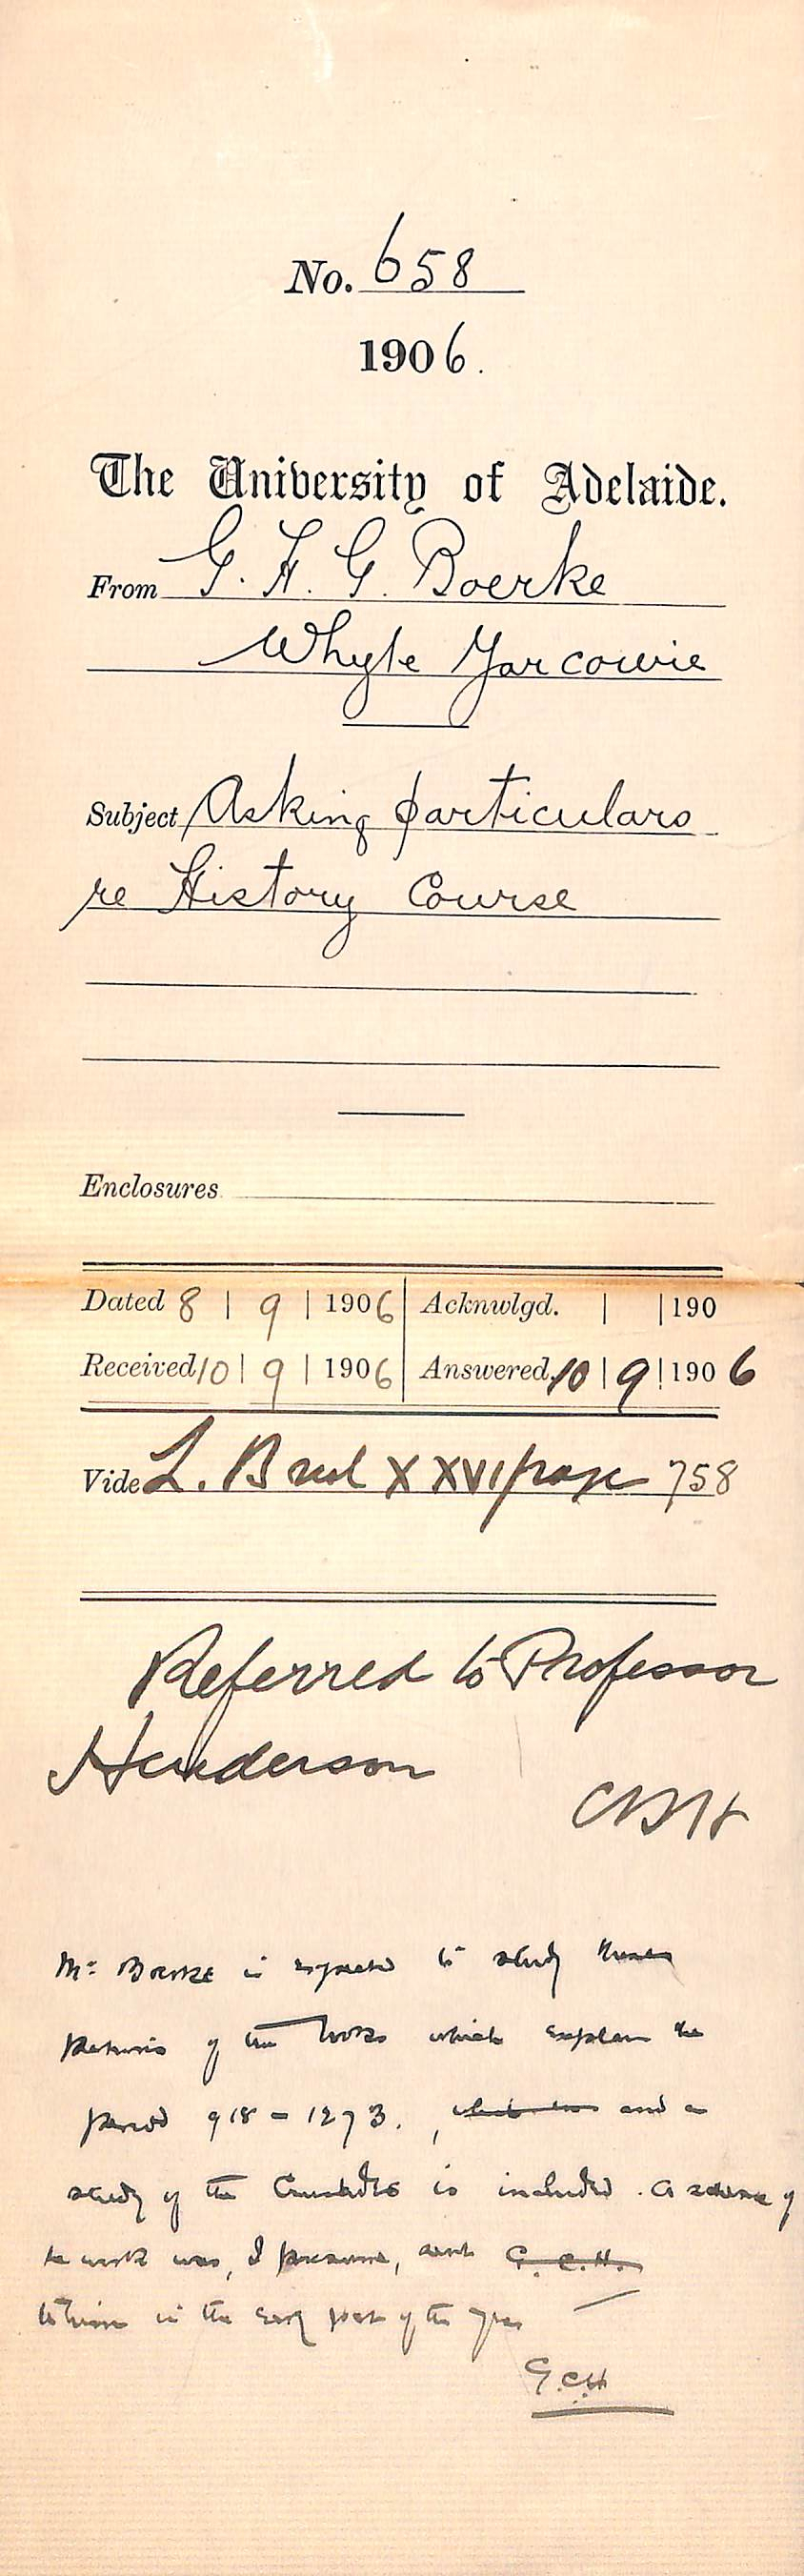 No. 658
1906.
The University of Adelaide.
From G. H. G. Boerke
Whyte Yarcowie
Subject Asking particulars
re History Course
Enclosures
Dated 8 | 9 | 1906 Acknwlgd. | | 190
Received 10 | 9 | 1906 Answered 10 | 9 | 1906
Vide L. B vol XXVI page 758
Referred to Professor
Henderson
Mr Boerke is expected to study those
portions of the works which explain the
period 918 - 1273. , and a
study of the Crusades is included. A scheme of
the work was, I presume, sent G. C. H.
to him in the early part of the year
G.C.H